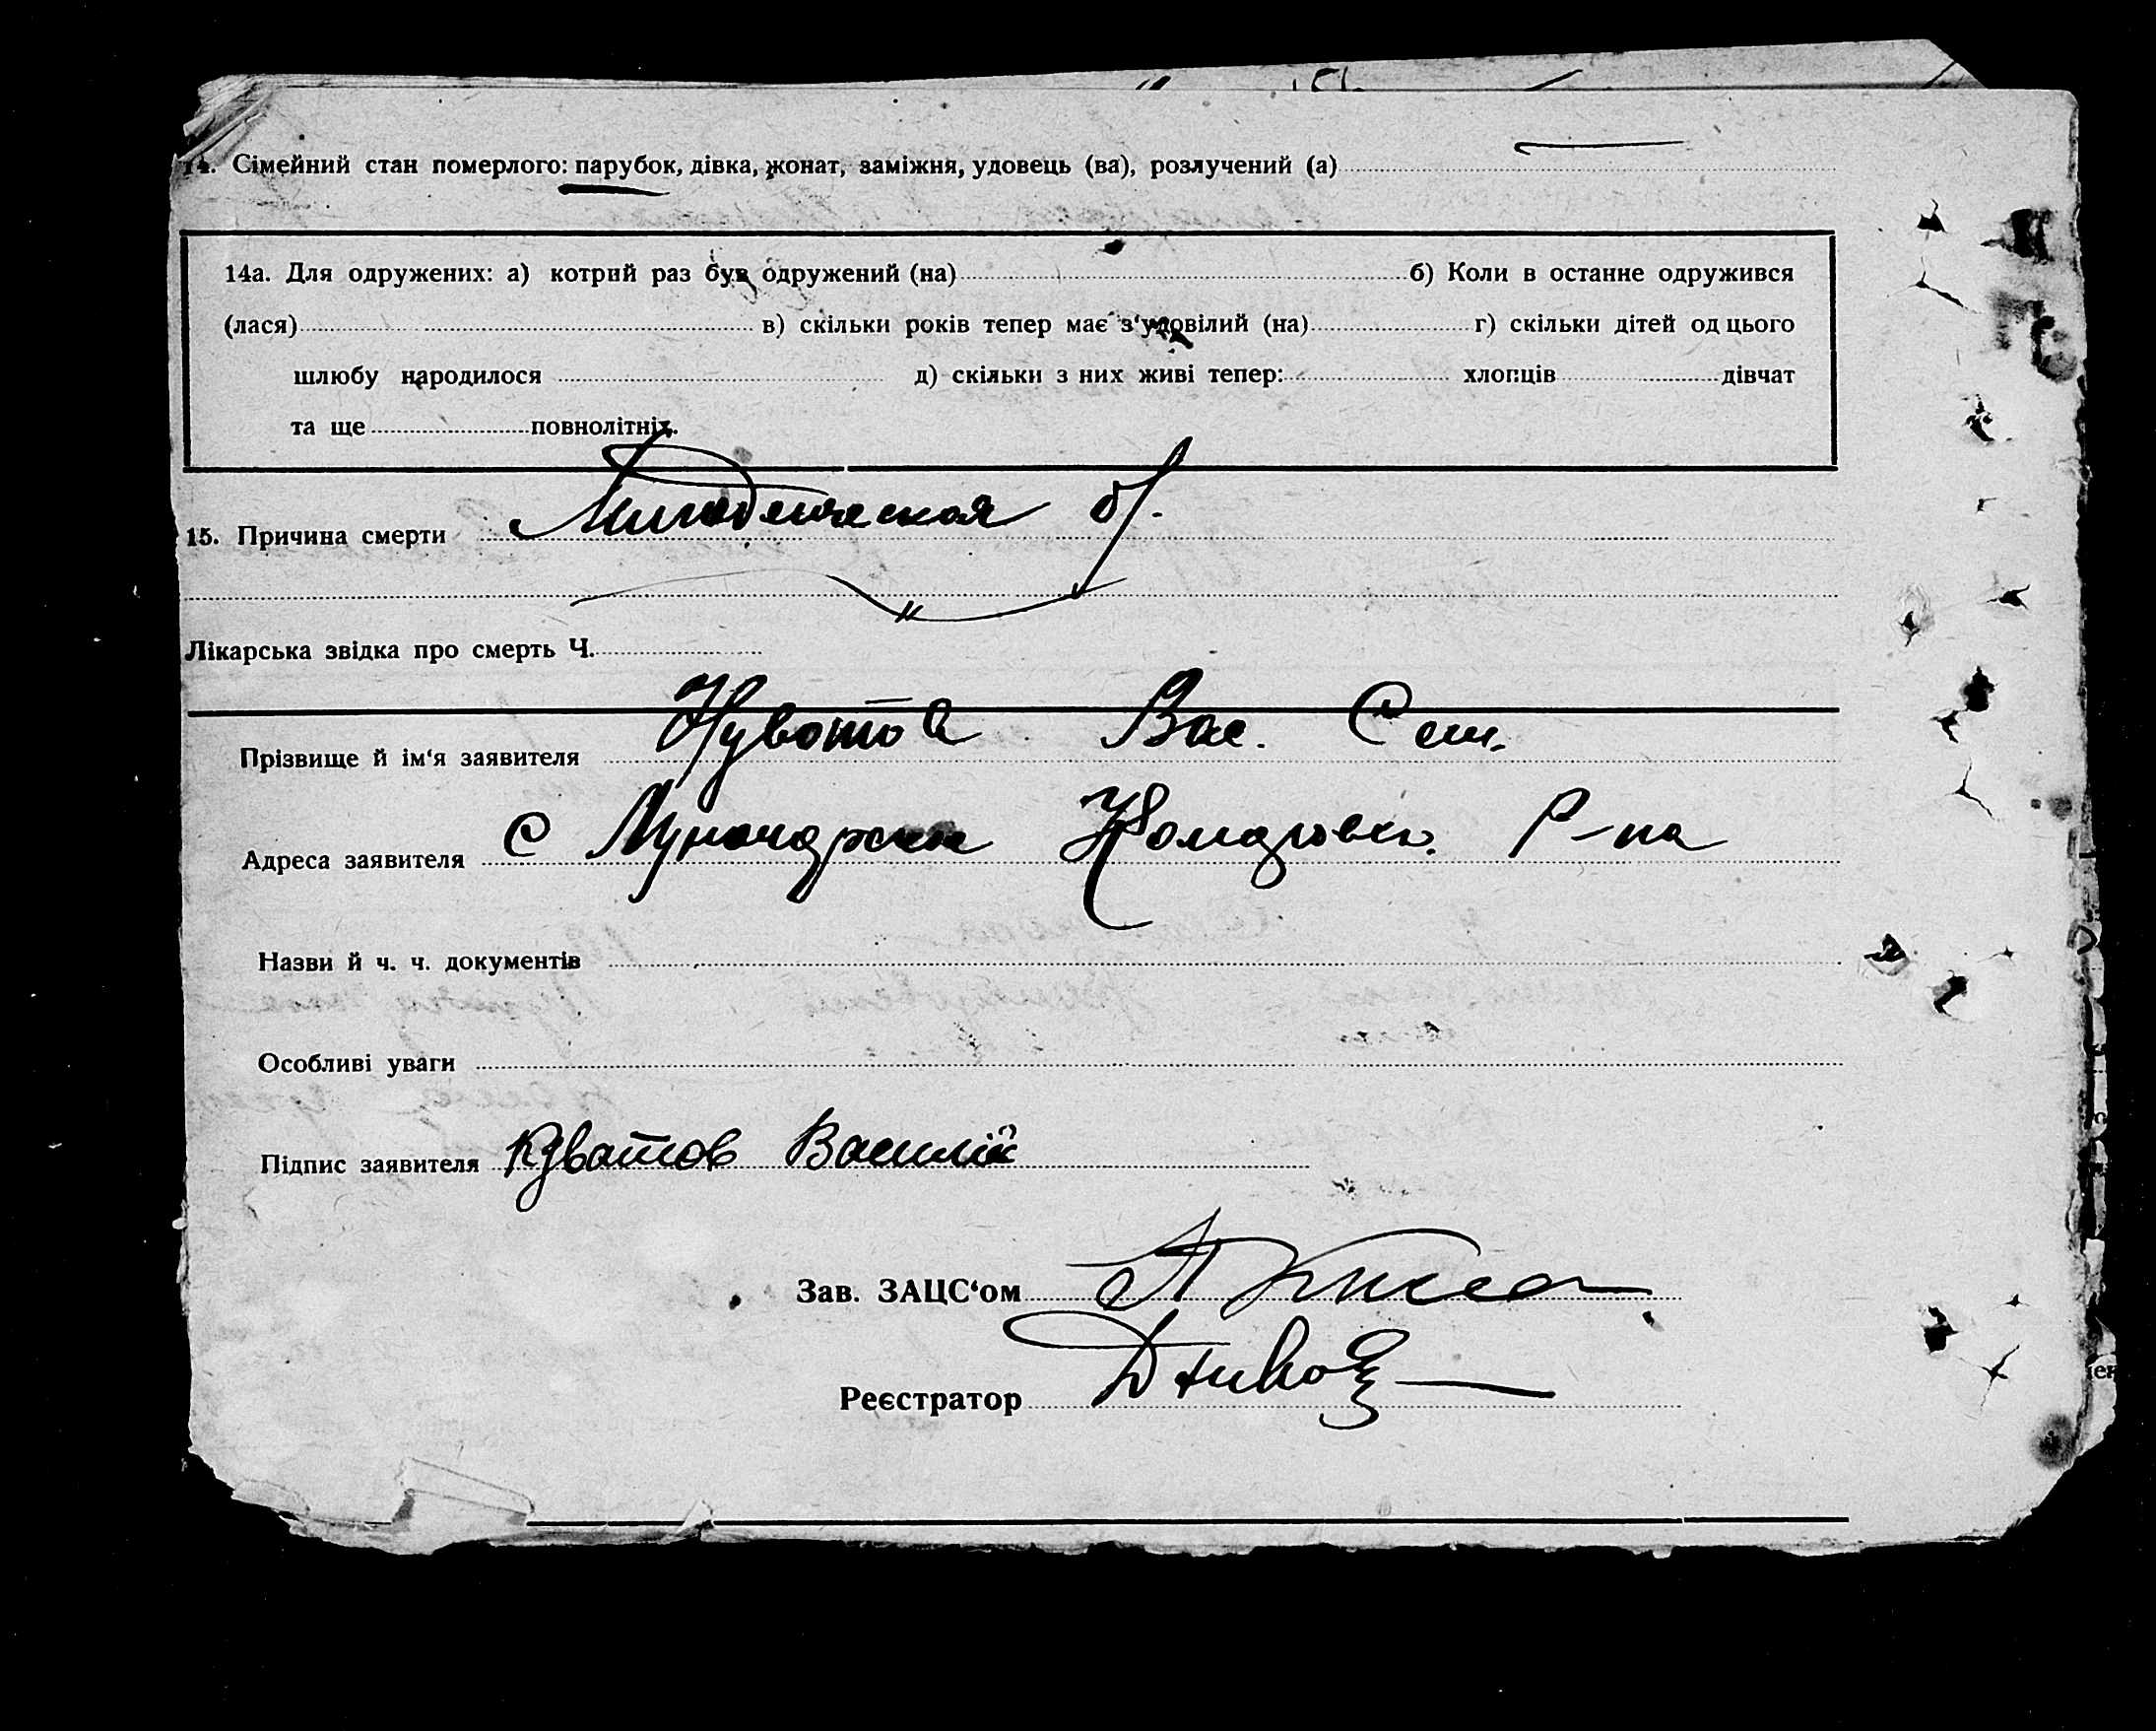 14. Сімейний стан померлого: парубок, дівка, жонат, заміжня, удовець (ва), розлучений (а)
14а. Для одружених: а) котрий раз був одружений (на) б) Коли в останне одружився
(лася) в) скільки років тепер має з'удовілий (на) г) скільки дітей од цього
шлюбу народилося д) скільки з них живі тепер: хлопців дівчат
та ще повнолітніх.
15. Причина смерти Младенческая б/.
Лікарська звідка про смерть Ч.
Прізвище й ім'я заявителя Куватов Вас. Сем.
Адреса заявителя С Луначарское Комаровск. Р-на
Назви й ч. ч. документів
Особливі уваги
Підпис заявителя Куватов Василій
Зав. ЗАЦС'ом
Реєстратор